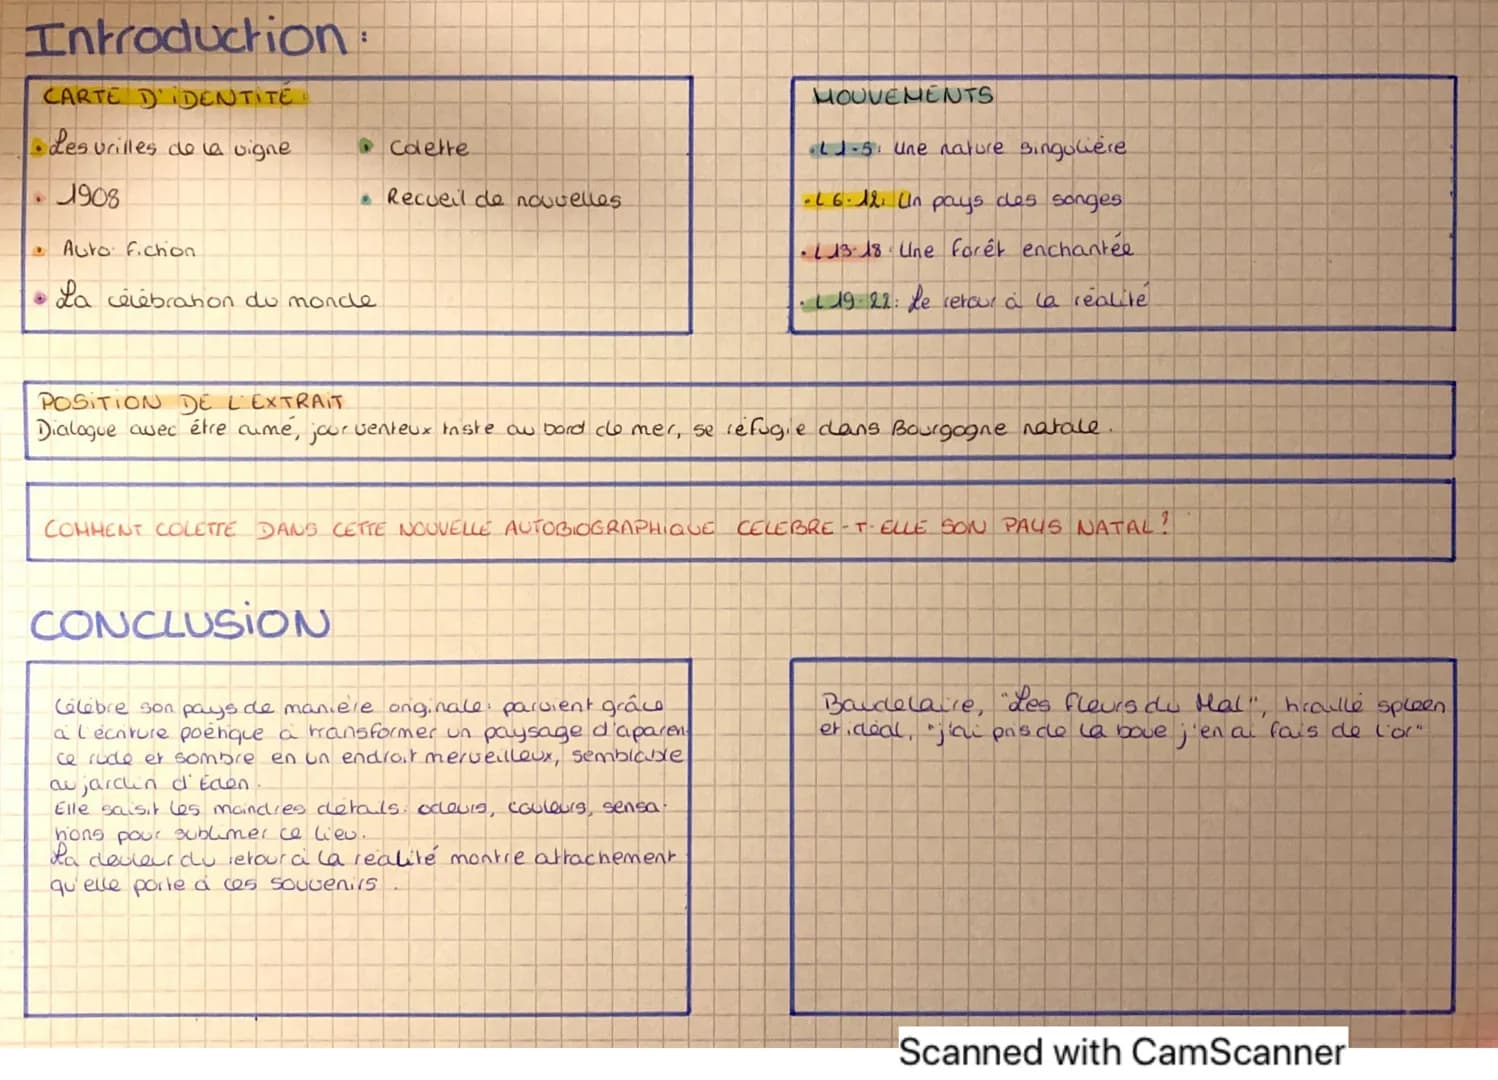 Introduction :
CARTE D'IDENTITÉ :
• Les vrilles de la vigne
• Colette
• 1908
• Recueil de nouvelles
• Auto-fiction
• La célébration du monde
MOUVEMENTS
• L 1-5: Une nature singulière
• L 6-12: Un pays des songes
• L 13-18: Une forêt enchantée
• L 19-22: Le retour à la réalité
POSITION DE L'EXTRAIT
Dialogue avec être aimé, jour venteux triste au bord de mer, se réfugie dans Bourgogne natale.
COMMENT COLETTE DANS CETTE NOUVELLE AUTOBIOGRAPHIQUE CELEBRE-T-ELLE SON PAYS NATAL ?
CONCLUSION
Célèbre son pays de manière originale: parvient grâce
à l'écriture poétique à transformer un paysage d'aparen
ce rude et sombre en un endroit merveilleux, semblable
au jardin d'Eden.
Elle saisit les moindres détails: odeurs, couleurs, sensa-
tions pour sublimer ce lieu.
La douleur du retour à la réalité montre attachement
qu'elle porte à ces souvenirs.
Baudelaire, "Les fleurs du Mal", tiraillé spleen
et idéal, "j'ai pris de la boue j'en ai fais de l'or"
Scanned with CamScanner